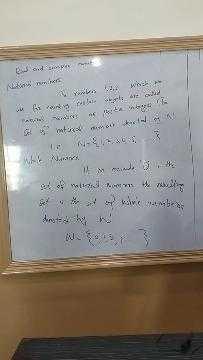 Real and complex numb
Natural numbers
The numbers 1,2,3 which we
use for counting certain objects are called
natural numbers or positive integers. The
set of natural numbers denoted by N
i.e N = {1, 2, 3, 4, 5, }
Whole Numbers
If we include 0 in the
set of natural numbers the resulting
set is the set of whole numbers
denoted by W
W = {0, 1, 2, 3, }